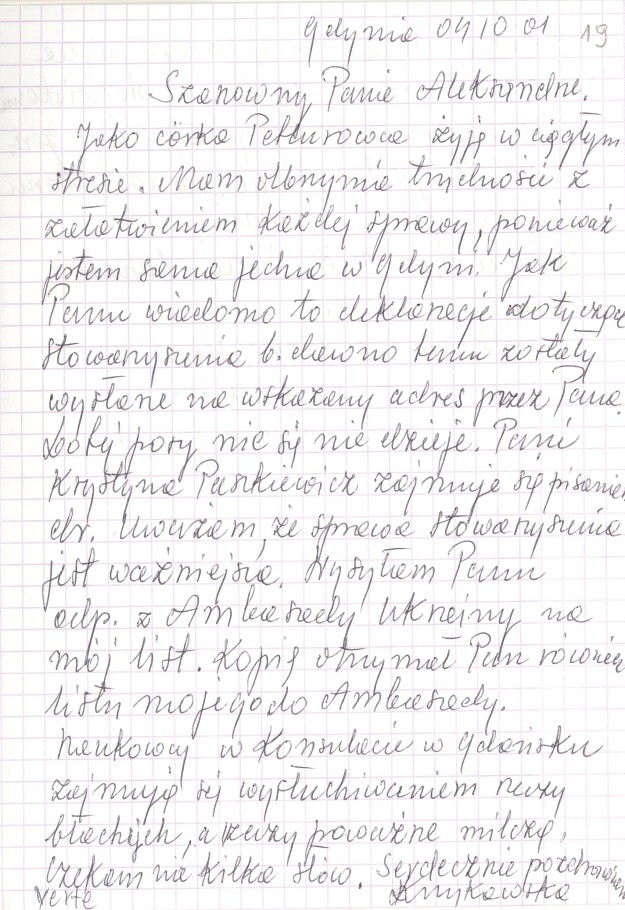 Gdynia 04 10 01 19
Szanowny Panie Aleksandrze.
Jako córka Petlurowca żyję w ciągłym
stresie. Mam olbrzymie trudności z
załatwieniem każdej sprawy, ponieważ
jestem sama jedna w Gdyni. Jak
Panu wiadomo to deklaracje dotyczące
stowarzyszenia b. dawno temu zostały
wysłane na wskazany adres przez Pana.
Do tej pory nic się nie dzieje. Pani
Krystyna Paszkiewicz zajmuje się pisaniem
dr. Uważam, że sprawa stowarzyszenia
jest ważniejsza. Wysyłam Panu
odp. z Ambasady Ukrainy na
mój list. Kopię otrzymał Pan również
listu mojego do Ambasady.
Naukowcy w Konsulacie w Gdańsku
zajmują się wysłuchiwaniem rzeczy
błachych, a rzeczy poważne milczą.
Czekam na kilka słów. Serdecznie pozdrawiam
Verte